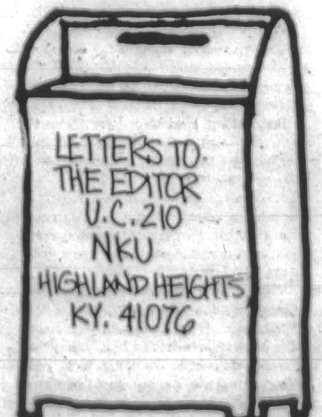 LETTERS TO
THE EDITOR
U.C. 210
NKU
HIGHLAND HEIGHTS,
KY. 41076